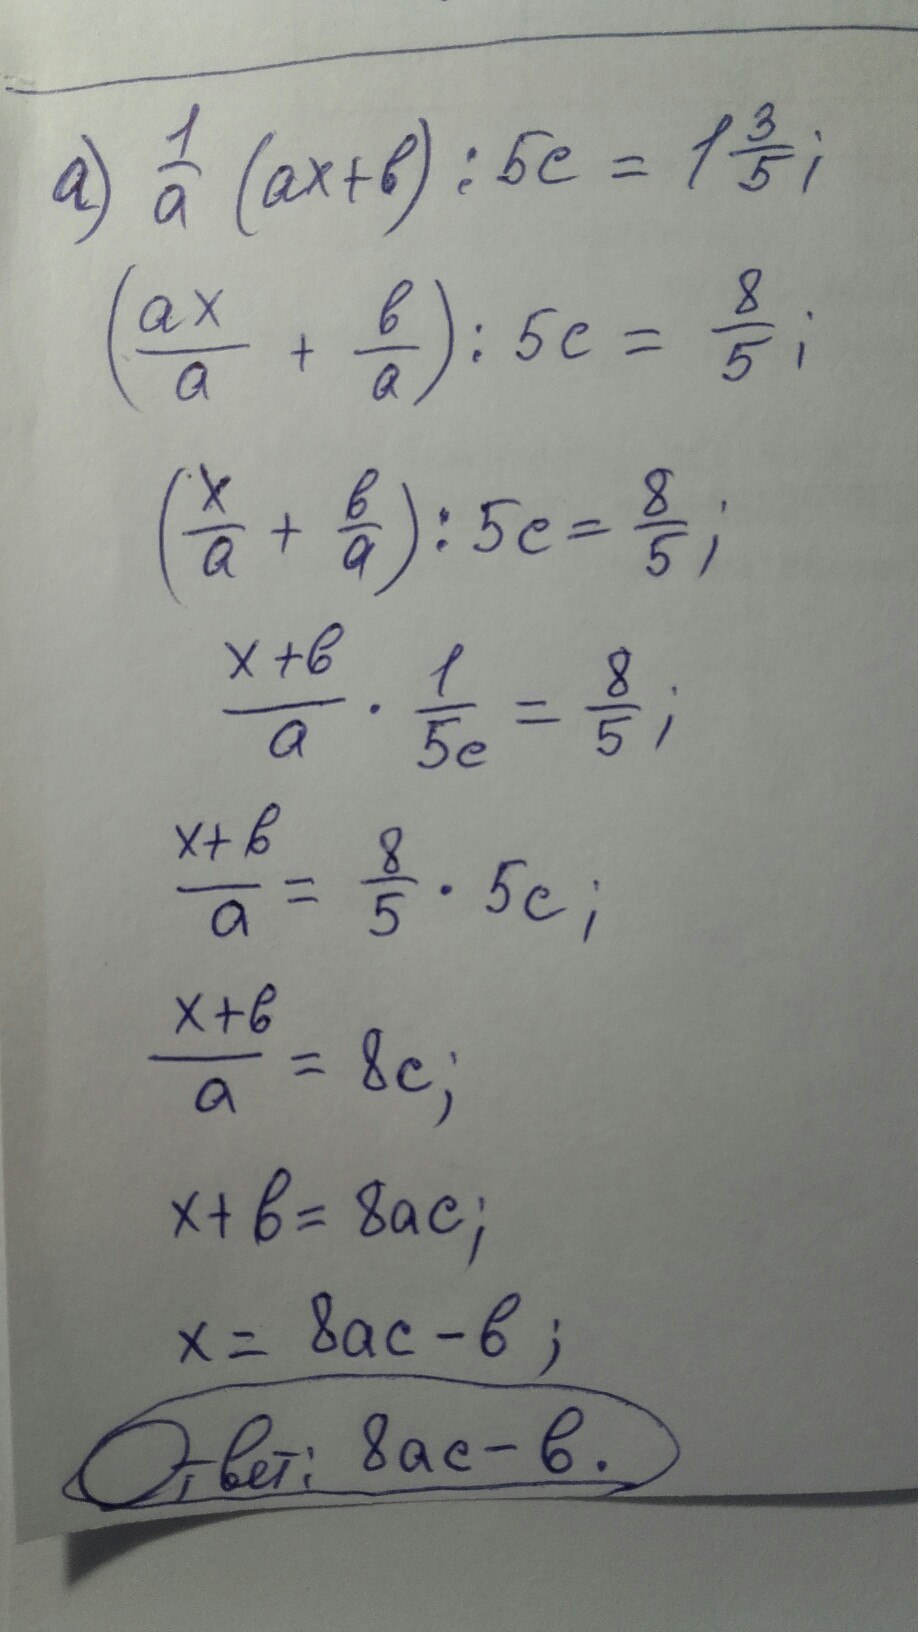 а) 1/a (ax+в) : 5c = 1 3/5;
(ax/a + в/a) : 5c = 8/5;
(x/a + в/a) : 5c = 8/5;
x+в/a · 1/5c = 8/5;
x+в/a = 8/5 · 5c;
x+в/a = 8c;
x+в = 8ac;
x = 8ac - в;
Ответ: 8ac - в.